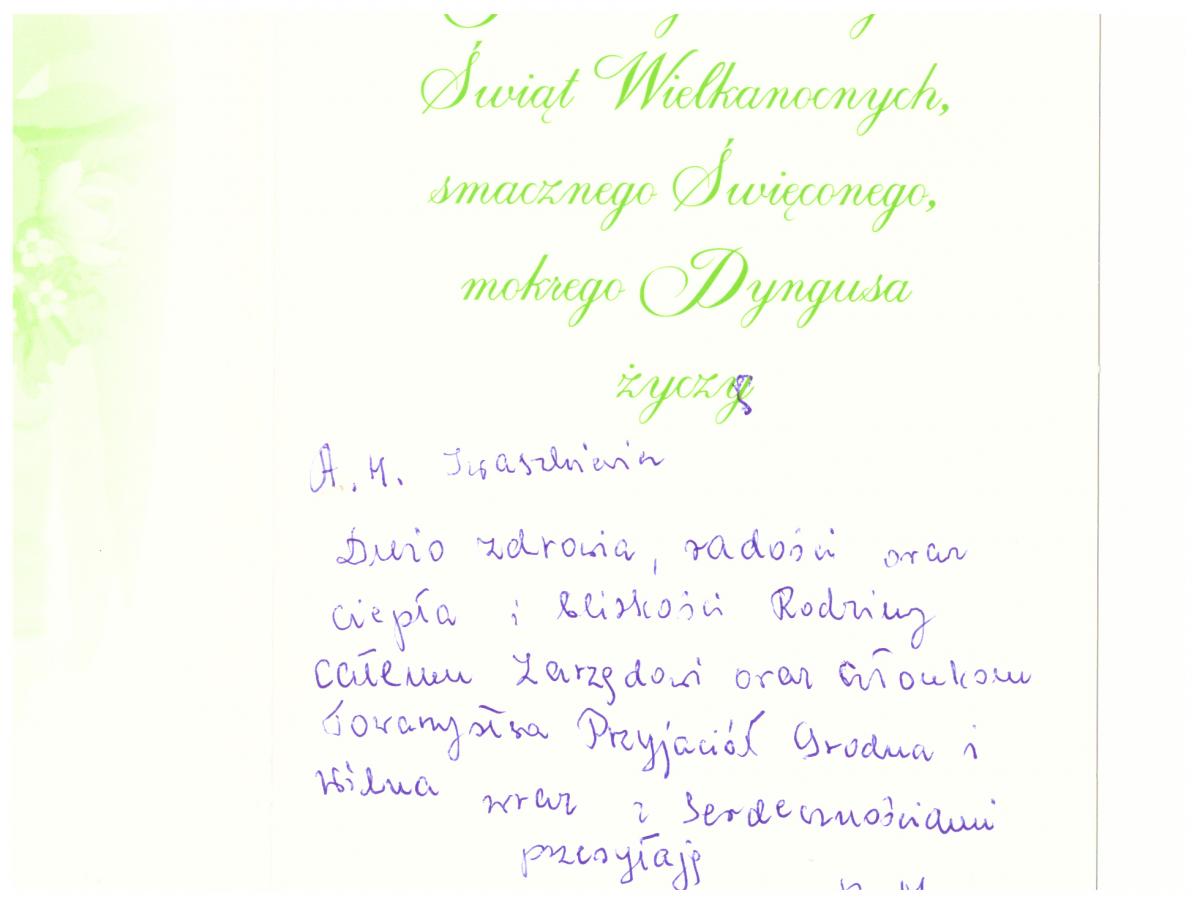 Świąt Wielkanocnych,
smacznego Święconego,
mokrego Dyngusa
życzą
A. M. Iwaszkiewicz
Dużo zdrowia, radości oraz
ciepła i bliskości Rodziny
całemu Zarządowi oraz członkom
Towarzystwa Przyjaciół Grodna i
Wilna wraz z serdecznościami
przesyłają